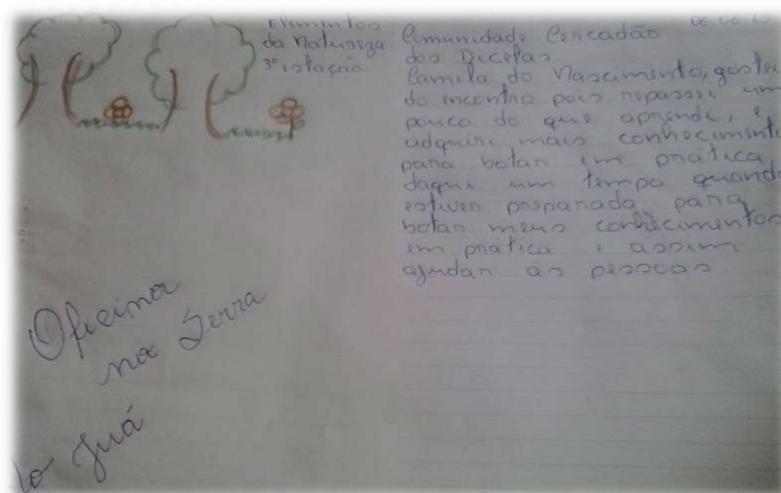 Elimintos
da Natureza
3º istação
Comunidade Cercadão
dos Dicetas.
Camila do Nascimento, gostei
do incontro pois repassei um
pouco do que aprendi, e
adquiri mais conhecimento
para botar em prática
daqui um tempo quando
estiver preparada para
botar meus conhecimentos
em prática i assim
ajudar as pessoas
Oficina
na Serra
do Juá